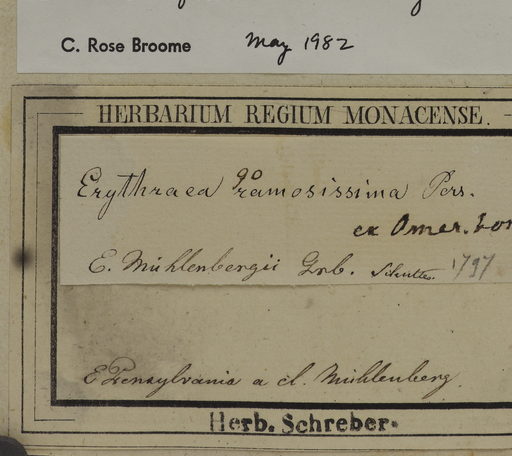 C. Rose Broome May 1982
HERBARIUM REGIUM MONACENSE.
Erythraea ramosissima Pers.
ex Amer. bor
E. Mühlenbergii Grb. Schultes. 1797
E Pensylvania a cl. Mühlenberg.
Herb. Schreber.